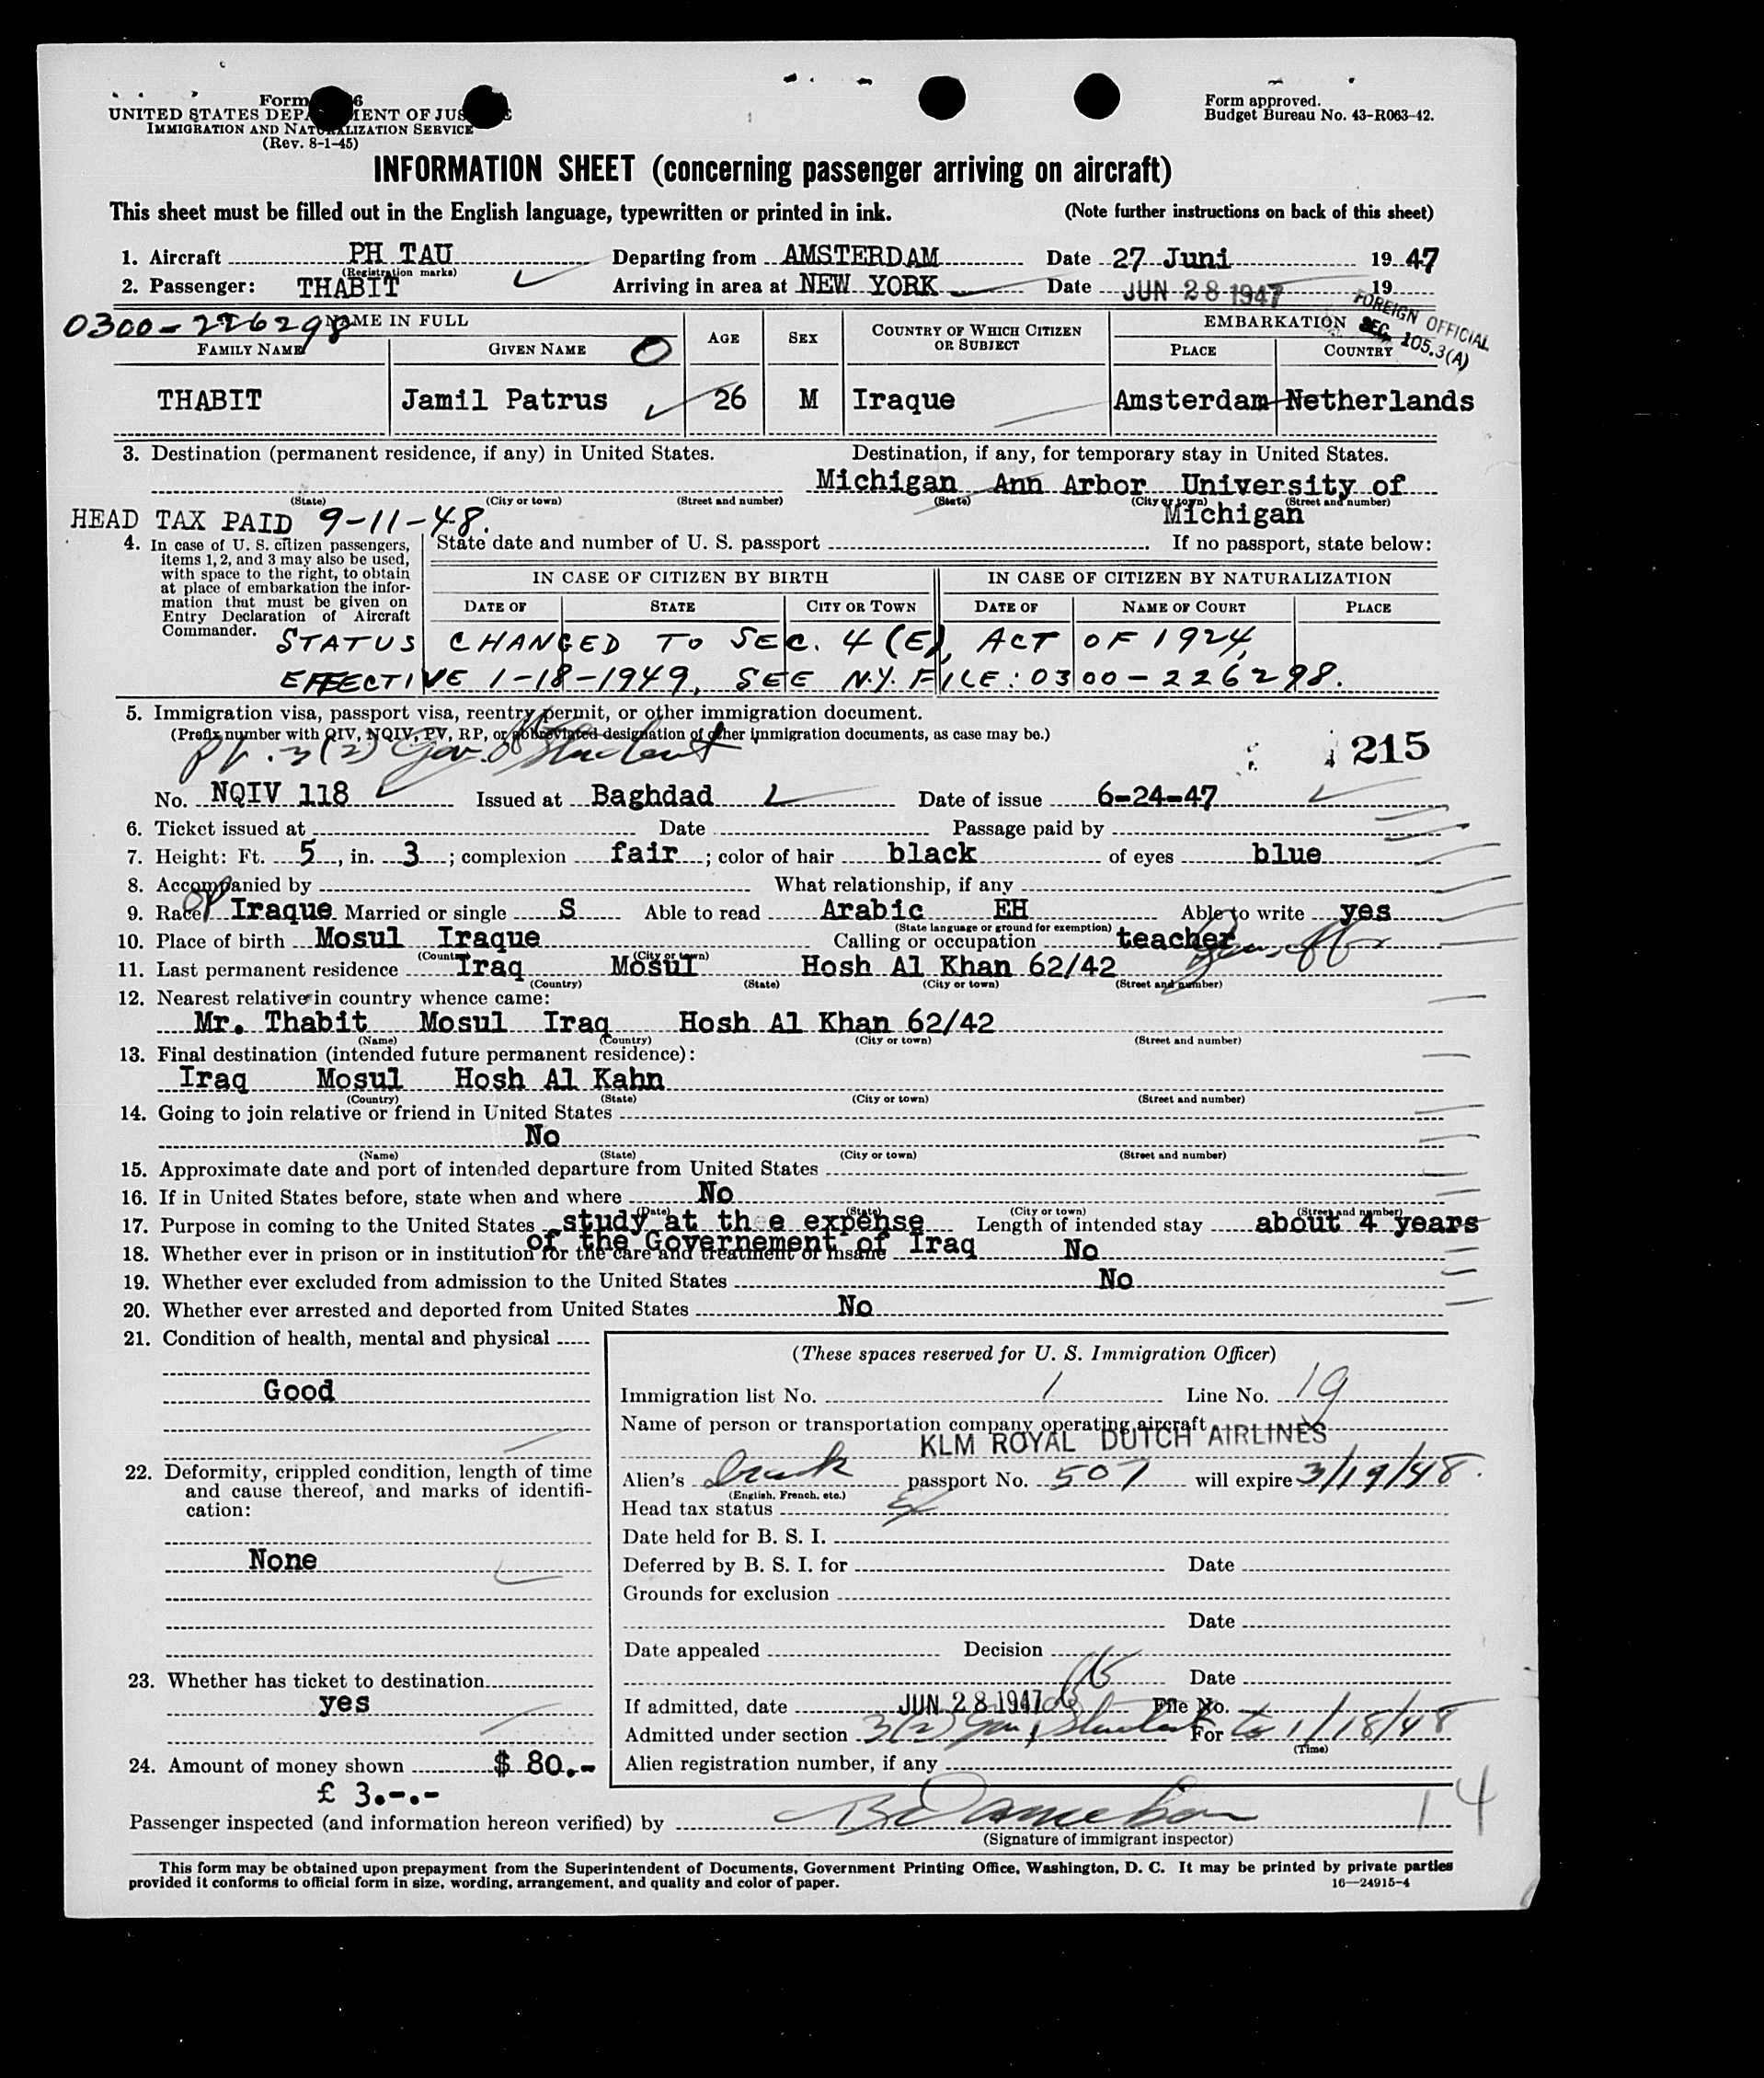 Form 6
UNITED STATES DEPA MENT OF JUS E
IMMIGRATION AND NATURALIZATION SERVICE
(Rev. 8-1-45)
Form approved.
Budget Bureau No. 43-R063-42.
INFORMATION SHEET (concerning passenger arriving on aircraft)
This sheet must be filled out in the English language, typewritten or printed in ink. (Note further instructions on back of this sheet)
1. Aircraft PH TAU Departing from AMSTERDAM Date 27 Juni 19 47
(Registration marks)
2. Passenger: THABIT Arriving in area at NEW YORK Date JUN 28 1947 19
FOREIGN OFFICIAL
SEC. 105.3(A)
0300-226298 NAME IN FULL
FAMILY NAME GIVEN NAME O AGE SEX COUNTRY OF WHICH CITIZEN OR SUBJECT EMBARKATION PLACE COUNTRY
THABIT Jamil Patrus 26 M Iraque Amsterdam Netherlands
3. Destination (permanent residence, if any) in United States. Destination, if any, for temporary stay in United States.
Michigan Ann Arbor University of
(State) (City or town) (Street and number) (State) (City or town) (Street and number)
Michigan
HEAD TAX PAID 9-11-48.
4. In case of U. S. citizen passengers, items 1, 2, and 3 may also be used, with space to the right, to obtain at place of embarkation the information that must be given on Entry Declaration of Aircraft Commander.
State date and number of U. S. passport If no passport, state below:
IN CASE OF CITIZEN BY BIRTH IN CASE OF CITIZEN BY NATURALIZATION
DATE OF STATE CITY OR TOWN DATE OF NAME OF COURT PLACE
STATUS CHANGED TO SEC. 4 (E), ACT OF 1924,
EFFECTIVE 1-18-1949, SEE N.Y. FILE: 0300-226298.
5. Immigration visa, passport visa, reentry permit, or other immigration document.
(Prefix number with QIV, NQIV, PV, RP, or abbreviated designation of other immigration documents, as case may be.)
PV. 3(2) Gov. Student
215
No. NQIV 118 Issued at Baghdad Date of issue 6-24-47
6. Ticket issued at Date Passage paid by
7. Height: Ft. 5, in. 3; complexion fair; color of hair black of eyes blue
8. Accompanied by What relationship, if any
9. Race Iraque Married or single S Able to read Arabic EH Able to write yes
(State language or ground for exemption)
10. Place of birth Mosul Iraque Calling or occupation teacher
(Country) (City or town)
11. Last permanent residence Iraq Mosul Hosh Al Khan 62/42
(Country) (State) (City or town) (Street and number)
12. Nearest relative in country whence came:
Mr. Thabit Mosul Iraq Hosh Al Khan 62/42
(Name) (Country) (City or town) (Street and number)
13. Final destination (intended future permanent residence):
Iraq Mosul Hosh Al Kahn
(Country) (State) (City or town) (Street and number)
14. Going to join relative or friend in United States
No
(Name) (State) (City or town) (Street and number)
15. Approximate date and port of intended departure from United States
16. If in United States before, state when and where No
(Date) (State) (City or town) (Street and number)
17. Purpose in coming to the United States study at th e expense Length of intended stay about 4 years
of the Governement of Iraq
18. Whether ever in prison or in institution for the care and treatment of insane No
19. Whether ever excluded from admission to the United States No
20. Whether ever arrested and deported from United States No
21. Condition of health, mental and physical
Good
22. Deformity, crippled condition, length of time and cause thereof, and marks of identification:
None
23. Whether has ticket to destination
yes
24. Amount of money shown $ 80.-
£ 3.-.-
(These spaces reserved for U. S. Immigration Officer)
Immigration list No. 1 Line No. 19
Name of person or transportation company operating aircraft
KLM ROYAL DUTCH AIRLINES
Alien's passport No. 507 will expire 3/19/48.
(English, French, etc.)
Head tax status
Date held for B. S. I.
Deferred by B. S. I. for Date
Grounds for exclusion
Date
Date appealed Decision
Date
If admitted, date JUN 28 1947 File No.
Admitted under section 3(2) Gov. Student For to 1/18/48
(Time)
Alien registration number, if any
14
Passenger inspected (and information hereon verified) by
(Signature of immigrant inspector)
This form may be obtained upon prepayment from the Superintendent of Documents, Government Printing Office, Washington, D. C. It may be printed by private parties
provided it conforms to official form in size, wording, arrangement, and quality and color of paper. 16—24915-4